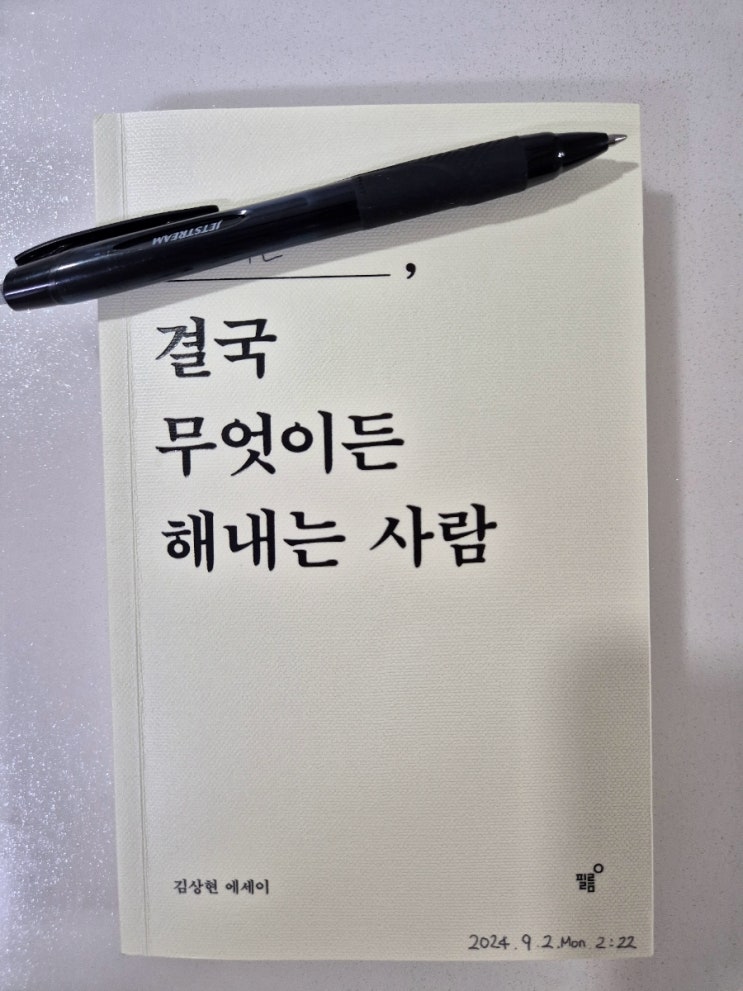 JETSTREAM
,
결국
무엇이든
해내는 사람
김상현 에세이
필름
2024. 9. 2. Mon 2:22